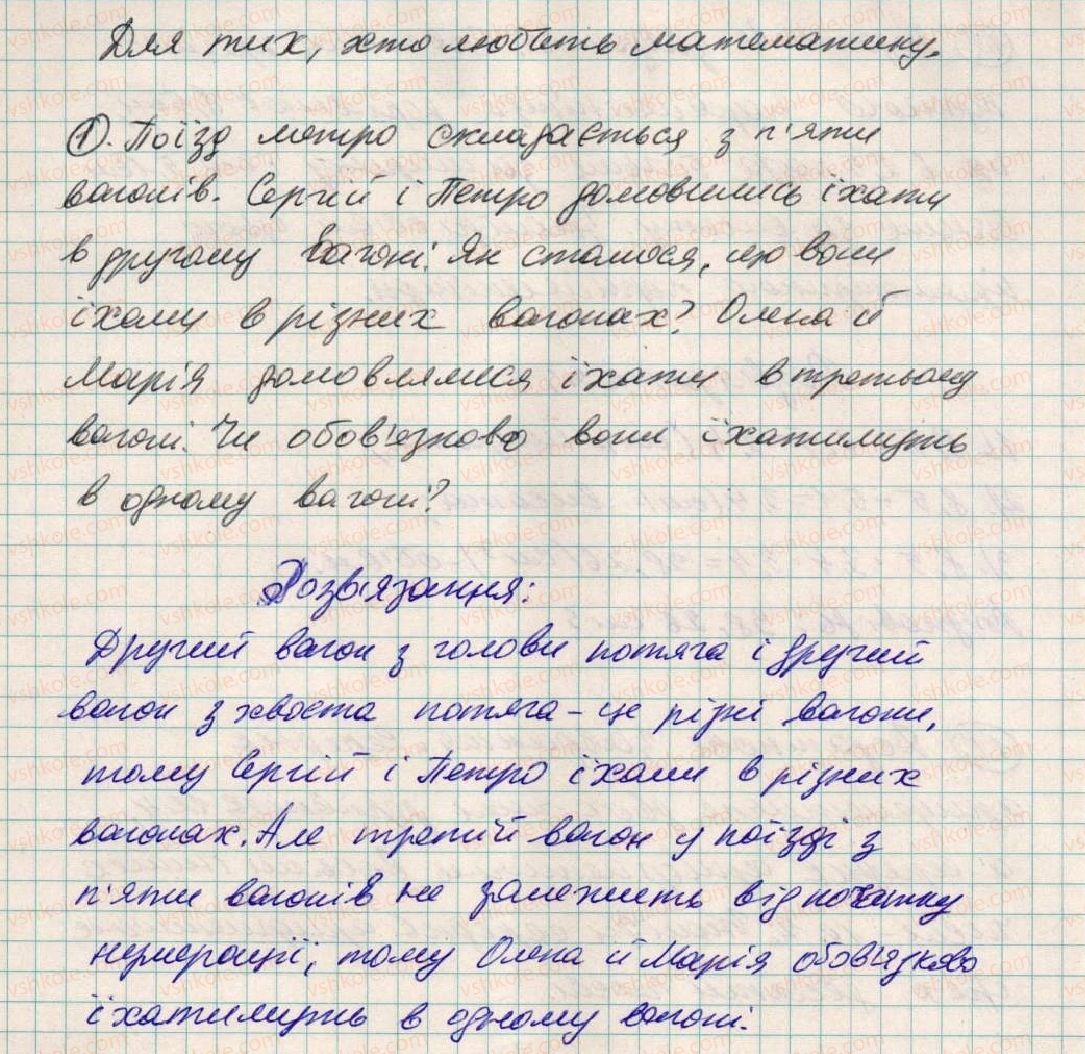 Для тих, хто любить математику.
1. Поїзд метро складається з п'яти
вагонів. Сергій і Петро домовились їхати
в другому вагоні. Як сталося, що вони
їхали в різних вагонах? Олена й
Марія домовлялися їхати в третьому
вагоні. Чи обов'язково вони їхатимуть
в одному вагоні?
Розв'язання:
Другий вагон з голови потяга і другий
вагон з хвоста потяга - це різні вагони,
тому Сергій і Петро їхали в різних
вагонах. Але третій вагон у поїзді з
п'яти вагонів не залежить від початку
нумерації, тому Олена й Марія обов'язково
їхатимуть в одному вагоні.